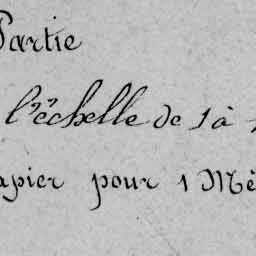 Partie
l'échelle de 1 à
apier pour 1 Mè